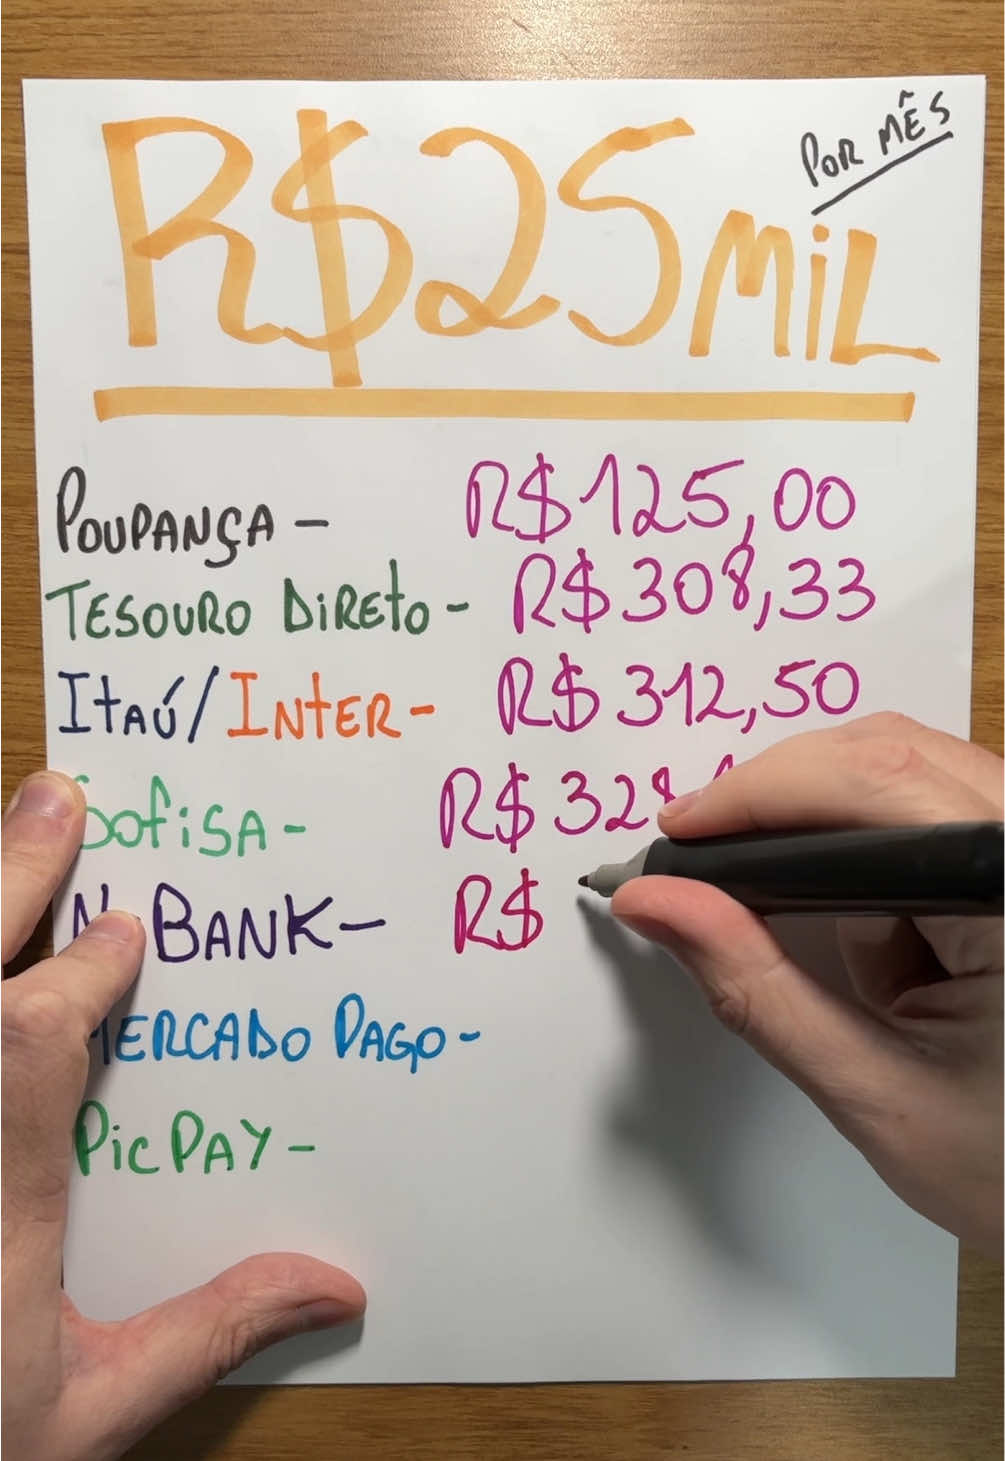 POR MÊS
R$25 MIL
POUPANÇA - R$125,00
TESOURO DIRETO - R$308,33
ITAÚ/INTER - R$312,50
SOFISA - R$328
BANK - R$
MERCADO PAGO -
PICPAY -